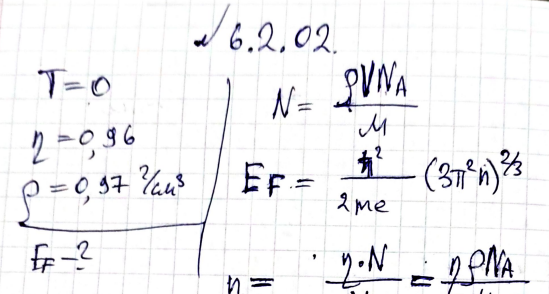 №6.2.02.
T=0
η=0,96
ρ=0,97 г/см³
E_F-?
N= ρVN_A / M
E_F = ħ² / 2me (3π²n)^2/3
n = η·N = ηρN_A